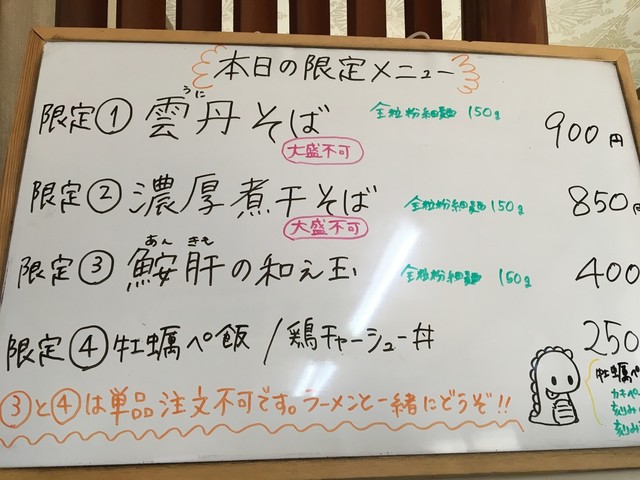 本日の限定メニュー
限定① 雲丹そば 全粒粉細麺 150g 900円
うに
大盛不可
限定② 濃厚煮干そば 全粒粉細麺 150g 850円
大盛不可
あん きも
限定③ 鮟肝の和え玉 全粒粉細麺 150g 400
限定④ 牡蠣ペ飯/鶏チャーシュー丼 250
③と④は単品注文不可です。ラーメンと一緒にどうぞ!!
牡蠣ペ
カキペ
刻み
刻み